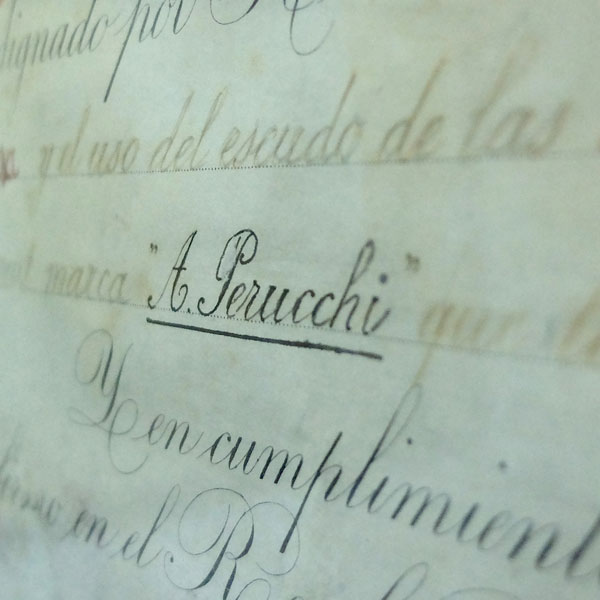 signado por
y el uso del escudo de las
marca "A. Perucchi" que
Y en cumplimient
en el R